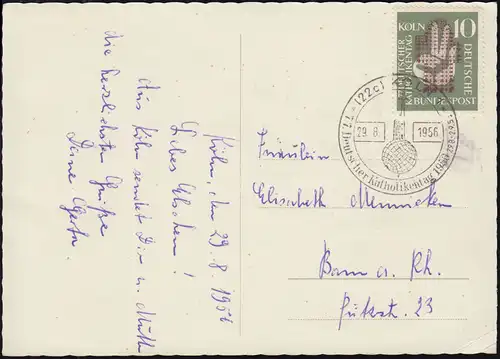 Köln, den 29.8.1956
Liebes Elschen!
Aus Köln sendet Dir u. Mutti
die herzlichsten Grüße
Deine Gerta.
KÖLN 10
DEUTSCHER
KATHOLIKENTAG
DEUTSCHE
BUNDESPOST
(22c)
29.8. 1956
77. Deutscher Katholikentag 1956
Fräulein
Elisabeth
Bonn a. Rh.
23